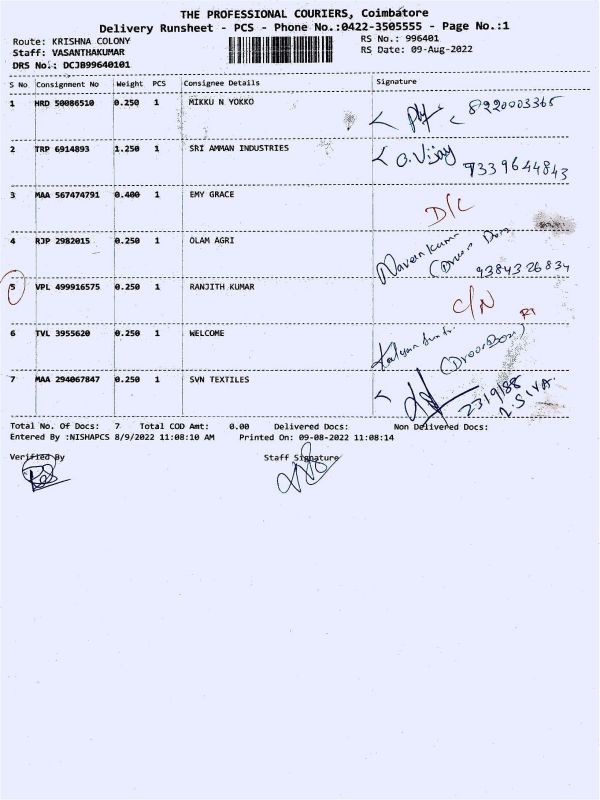 THE PROFESSIONAL COURIERS, Coimbatore
Delivery Runsheet - PCS - Phone No.:0422-3505555 - Page No.:1
Route: KRISHNA COLONY
RS No.: 996401
Staff: VASANTHAKUMAR
RS Date: 09-Aug-2022
DRS No.: DCJB99640101
S No Consignment No Weight PCS Consignee Details Signature
1 HRD 50086510 0.250 1 MIKKU N YOKKO 8220003365
2 TRP 6914893 1.250 1 SRI AMMAN INDUSTRIES G. Vijay 9339644843
3 MAA 567474791 0.400 1 EMY GRACE D/L
4 RJP 2982015 0.250 1 OLAM AGRI Naveen Kumar 9384326834
5 VPL 499916575 0.250 1 RANJITH KUMAR C/N
6 TVL 3955620 0.250 1 WELCOME
7 MAA 294067847 0.250 1 SVN TEXTILES SIVA
Total No. Of Docs: 7 Total COD Amt: 0.00 Delivered Docs: Non Delivered Docs:
Entered By :NISHAPCS 8/9/2022 11:08:10 AM Printed On: 09-08-2022 11:08:14
Verified By Staff Signature